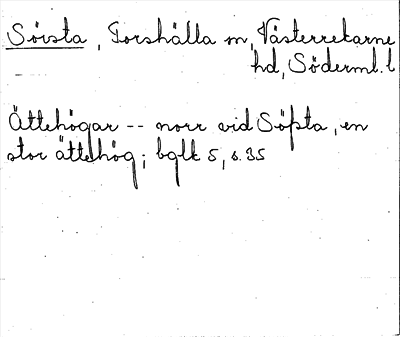 Sörsta, Torshälla sn, Västerrekarne
hd, Söderml. l
Ättehögar -- norr vid Söpsta, en
stor ättehög; bglk 5, s. 35